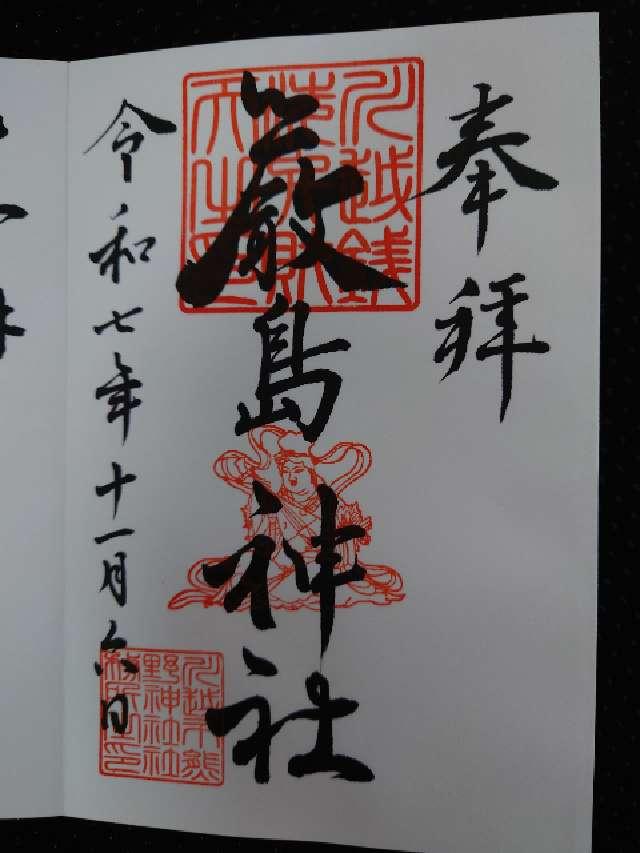 奉拝
厳島神社
令和七年十一月六日
川越銭
洗弁財
天之印
川越熊
野神社
務所之印